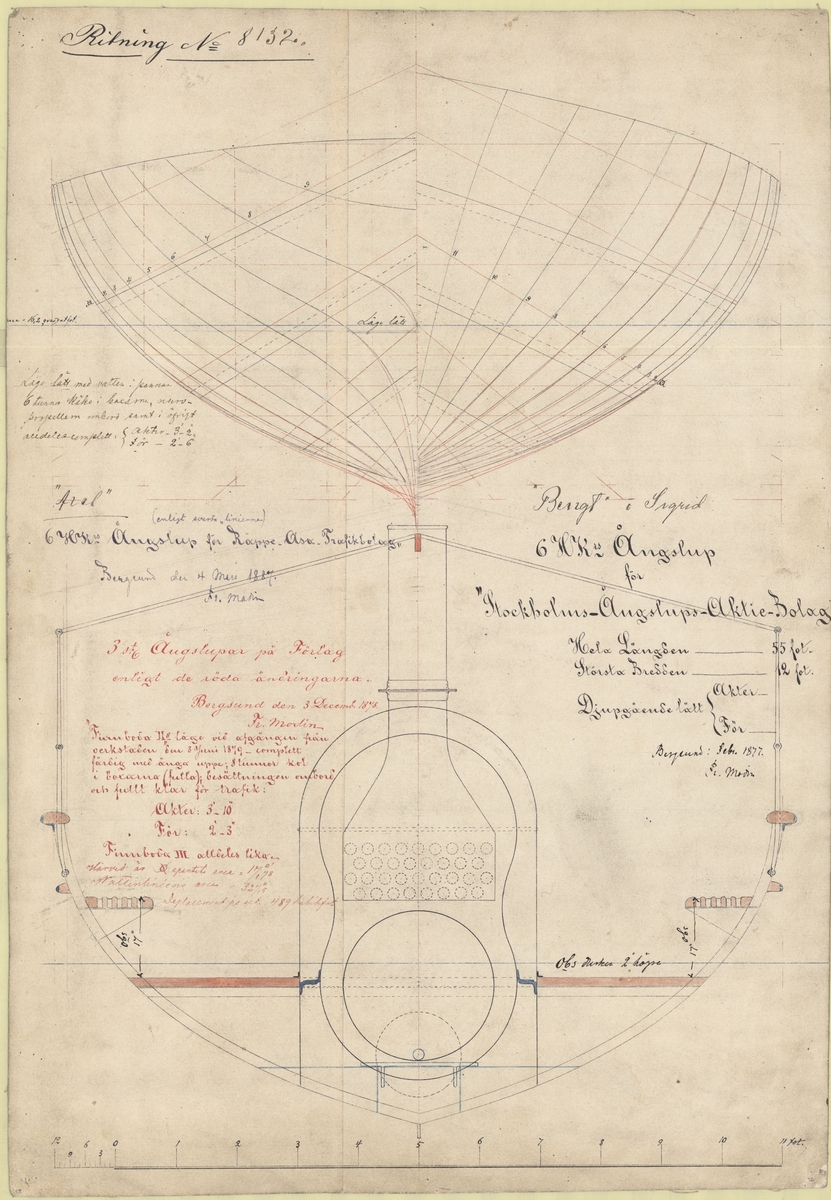 Ritning No 8132.
9
8
7
6
5
4
11
10
9
8
7
6
Läge lätt
Läge lätt med vatten i pannan
6 tunna koks i boxarna,
propellern ombord samt i öfrigt
alldeles complett. { Akter - 3'-2"
För - 2'-6"
"Axel"
(enligt svarta linierna)
6 HKrs Ångslup för Räppe-Asa-Trafikbolag.
Bergsund den 4 Mars 1887.
Fr. Modin
"Bengt" o Sigrid
6 HKrs Ångslup
för
"Stockholms-Ångslups-Aktie-Bolag
Hela Längden 55 fot.
Största Bredden 12 fot.
Djupgående lätt { Akter
För
Bergsund: Febr. 1877.
Fr. Modin
3 st. Ångslupar på Förlag
enligt de röda ändringarna.
Bergsund den 3 Decemb. 1878.
Fr. Modin
Finnboda No läge vid afgången från
verkstaden den 3 Juni 1879 - complett
färdig med ånga uppe, 8 tunnor kol
i boxarna (fulla); besättningen ombord
och fullt klar för trafik:
Akter: 3'-10"
För: 2'-3"
Finnboda M alldeles lika.
Vattenliniens area
Deplacement pr vid. 489 kubikfot
17"
17"
Obs Durken 2" högre
12 9 6 3 0 1 2 3 4 5 6 7 8 9 10 11 fot.